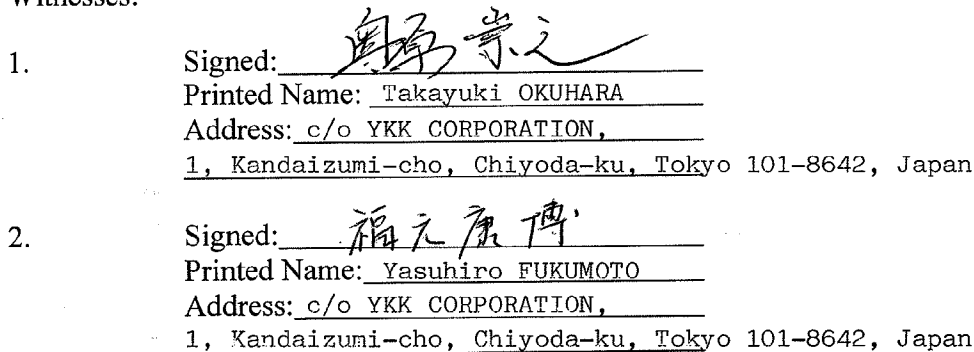 Witnesses:
1. Signed: 奥原 崇之
Printed Name: Takayuki OKUHARA
Address: c/o YKK CORPORATION,
1, Kandaizumi-cho, Chiyoda-ku, Tokyo 101-8642, Japan
2. Signed: 福元康博
Printed Name: Yasuhiro FUKUMOTO
Address: c/o YKK CORPORATION,
1, Kandaizumi-cho, Chiyoda-ku, Tokyo 101-8642, Japan